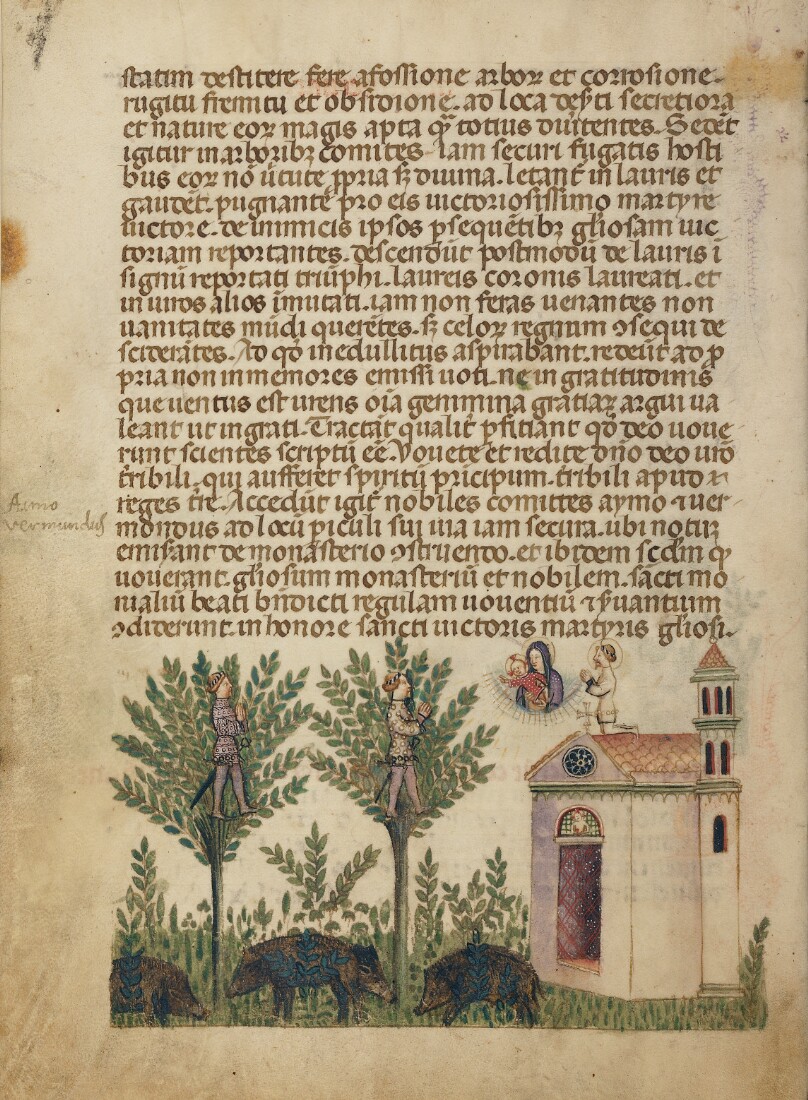 statim destitere fere a fossione arboꝝ et corrosione.
rugitu fremitu et obsidione. ad loca deẜti secretiora
et nature eoꝝ magis apta q̃ totius diutentes. Sedēt
igitur in arboribꝫ comites. Iam securi fugatis hosti
bus eoꝝ nō ũtute ꝓpria sꝫ diuina. letant̃ in lauris et
gaudēt. pugnantē pro eis uictoriosissimo martyre
uictore. de inimicis ipsos ꝑsequētibꝫ gl̃iosam uic
toriam reportantes. descendūt postmodū de lauris ī
signū reportati triūphi. laureis coronis laureati. et
in uiros alios īmutati. iam non feras uenantes non
uanitates mūdi querētes. sꝫ celoꝝ regnum ꝯsequi de
siderātes. Ad qd̃ medullitus aspirabant. redeūt ad ꝓ
pria non inmemores emissi uoti. ne ingratitudinis
que uentus est urens oīa gemmina gratiaꝝ argui ua
leant ut ingrati. Tractāt qualit̃ ꝑficiant qd̃ deo uoue
runt scientes scriptū eē. Vouete et redite dño deo ur̃o
tribili. qui aufferet spiritū pricipum. tribili apud ⁊
reges tr̃e. Accedūt igit̃ nobiles comites aymo ⁊ uer
mondus ad locū ꝑiculi sui uia iam secura. ubi uotuꝫ
emiẜant de monasterio ꝯstruendo. et ibidem scd̃m qd̃
uouerant. gl̃iosum monasteriū et nobilem. sācti mo
nialiū beati bñdicti regulam uouentiū ⁊ ẜuantium
ꝯdiderunt. in honore sancti uictoris martyris gl̃iosi.
Aimo
vermundus